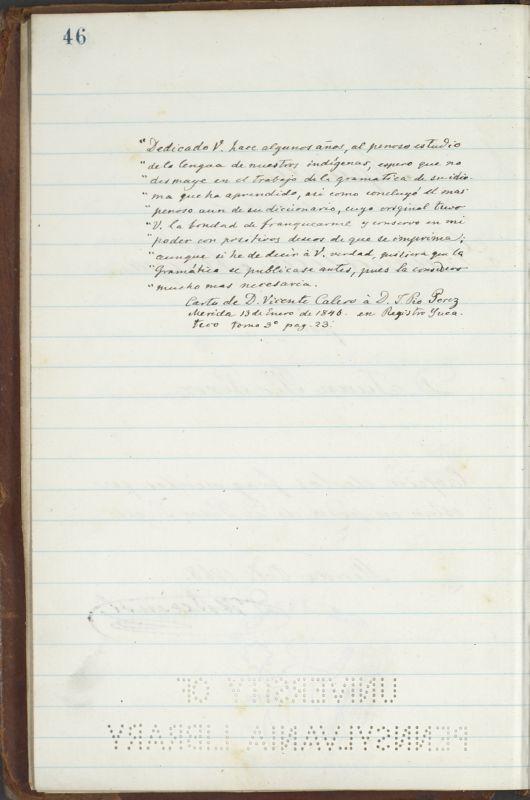 46
"Dedicado V. hace algunos años, al penoso estudio
"de la lengua de nuestros indígenas, espero que no
"desmaye en el trabajo de la gramatica de su idio-
"ma que ha aprendido, asi como concluyó el mas
"penoso aun de su diccionario, cuyo original tuvo
"V. la bondad de franquearme y conservo en mi
"poder con positivos deseos de que se imprima;
"aunque si he de decir à V. verdad, quisiera que la
"Gramática se publicase antes, pues la considero
"mucho mas necesaria.
Carta de D. Vicente Calero à D. J. Pio Perez
Merida 13 de Enero de 1846. en Registro Yuca-
teco tomo 3º pag. 23.
UNIVERSITY OF
PENNSYLVANIA LIBRARY